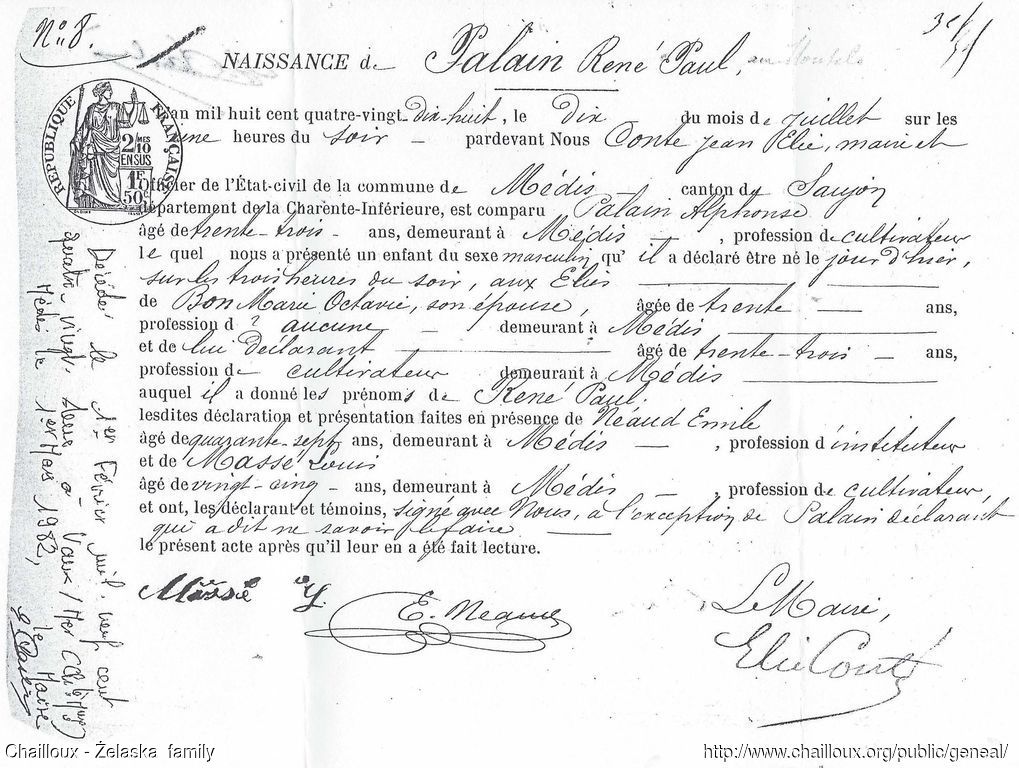 N° 8.
NAISSANCE de Palain René Paul,
RÉPUBLIQUE FRANÇAISE
2/10 MES
EN SUS
1F 50c
L'an mil huit cent quatre-vingt-dix-huit, le dix du mois de juillet sur les
une heures du soir — pardevant Nous Conte Jean Elie, maire et
Officier de l'État-civil de la commune de Médis — canton de Saujon
département de la Charente-Inférieure, est comparu Palain Alphonse
âgé de trente-trois — ans, demeurant à Médis — , profession de cultivateur
le quel nous a présenté un enfant du sexe masculin, qu'il a déclaré être né le jour d'hier,
sur les trois heures du soir, aux Elies
de Bon Marie Octavie, son épouse, âgée de trente — ans,
profession d' aucune — demeurant à Médis
et de lui déclarant âgé de trente-trois — ans,
profession de cultivateur demeurant à Médis
auquel il a donné les prénoms de René Paul.
lesdites déclaration et présentation faites en présence de Néaud Emile
âgé de quarante-sept ans, demeurant à Médis — , profession d'instituteur
et de Massé Louis
âgé de vingt-cinq — ans, demeurant à Médis — , profession de cultivateur,
et ont, les déclarant et témoins, signé avec Nous, à l'exception de Palain déclarant
qui a dit ne savoir le faire
le présent acte après qu'il leur en a été fait lecture.
Massé L. E. Neaud Le Maire,
Elie Conte
Décédé le 1er Février mil neuf cent
quatre-vingt deux à Vaux/Mer
Médis le 1er Mars 1982,
le Maire
Chailloux - Żelaska family
http://www.chailloux.org/public/geneal/